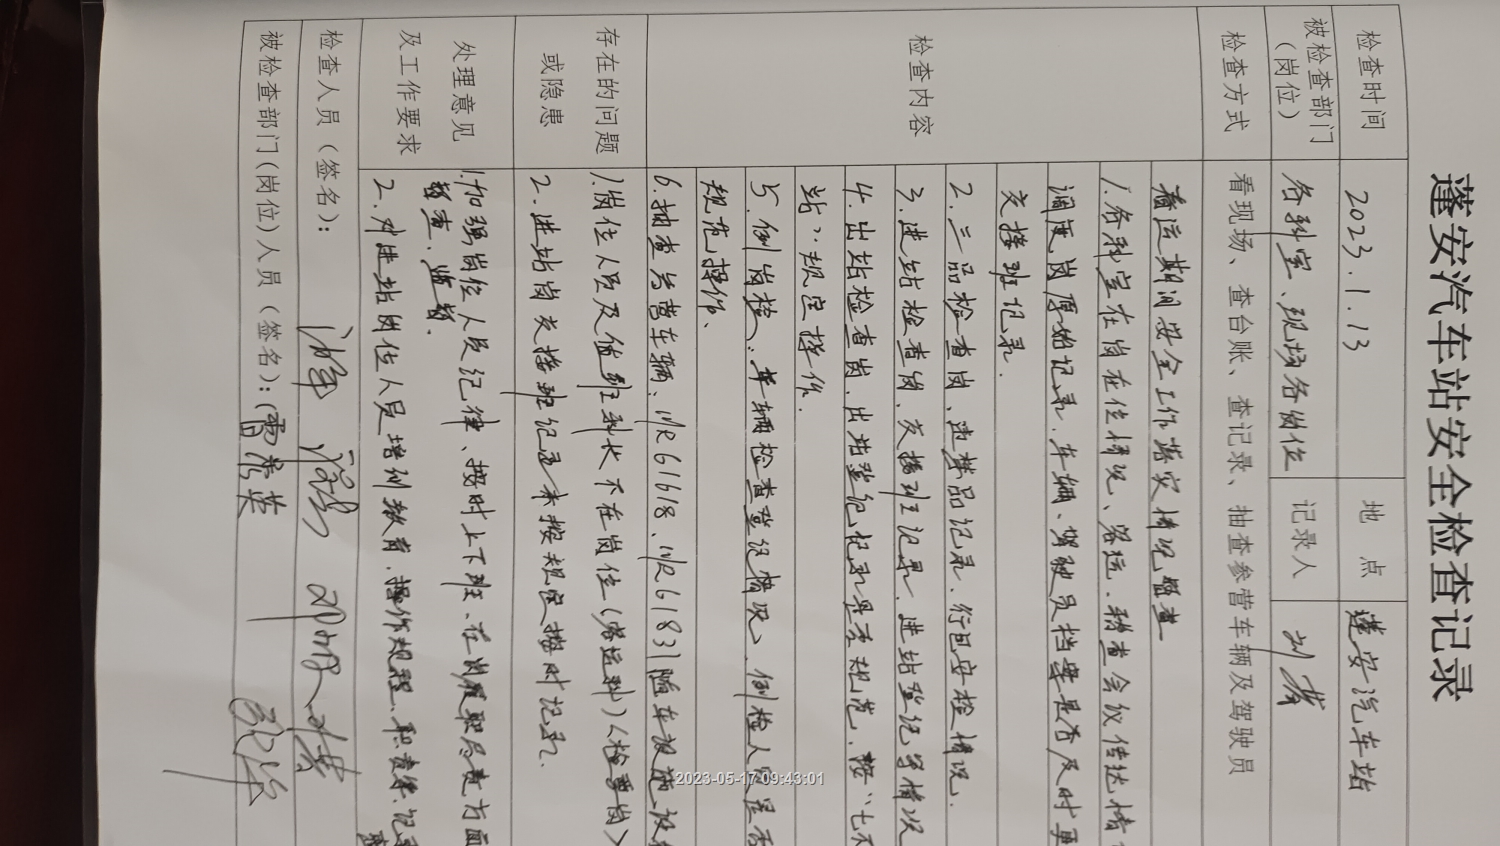 蓬安汽车站安全检查记录
检查时间 2023.1.13 地点 蓬安汽车站
被检查部门（岗位） 各科室、现场各岗位 记录人 刘
检查方式 看现场、查台账、查记录、抽查参营车辆及驾驶员
检查内容 春运期间安全工作落实情况监查
1.各科室在岗在位情况、客运、稽查会议传达情
调度岗原始记录.车辆、驾驶员档案是否及时更
交接班记录.
2.三品检查岗.违禁品记录.行包安检情况.
3.进站检查岗.交接班记录.进站登记等情况
4.出站检查岗.出站登记记录是否规范、按“七不
站”规定操作.
5.例岗检:车辆检查登记情况、例检人员是否
规范操作.
6.抽查参营车辆:川R61618、川R61831随车设施设
存在的问题或隐患 1.岗位人员及值班科长不在岗位(客运科)(检票岗)
2.进站岗交接班记录未按规定按时记录.
处理意见及工作要求 1.加强岗位人员纪律、按时上下班、在岗履职尽责方面
督查、监督.
2.对进站岗位人员培训教育.操作规程、职责条、记
检查人员（签名）:
被检查部门(岗位)人员（签名）:
2023-05-17 09:43:01